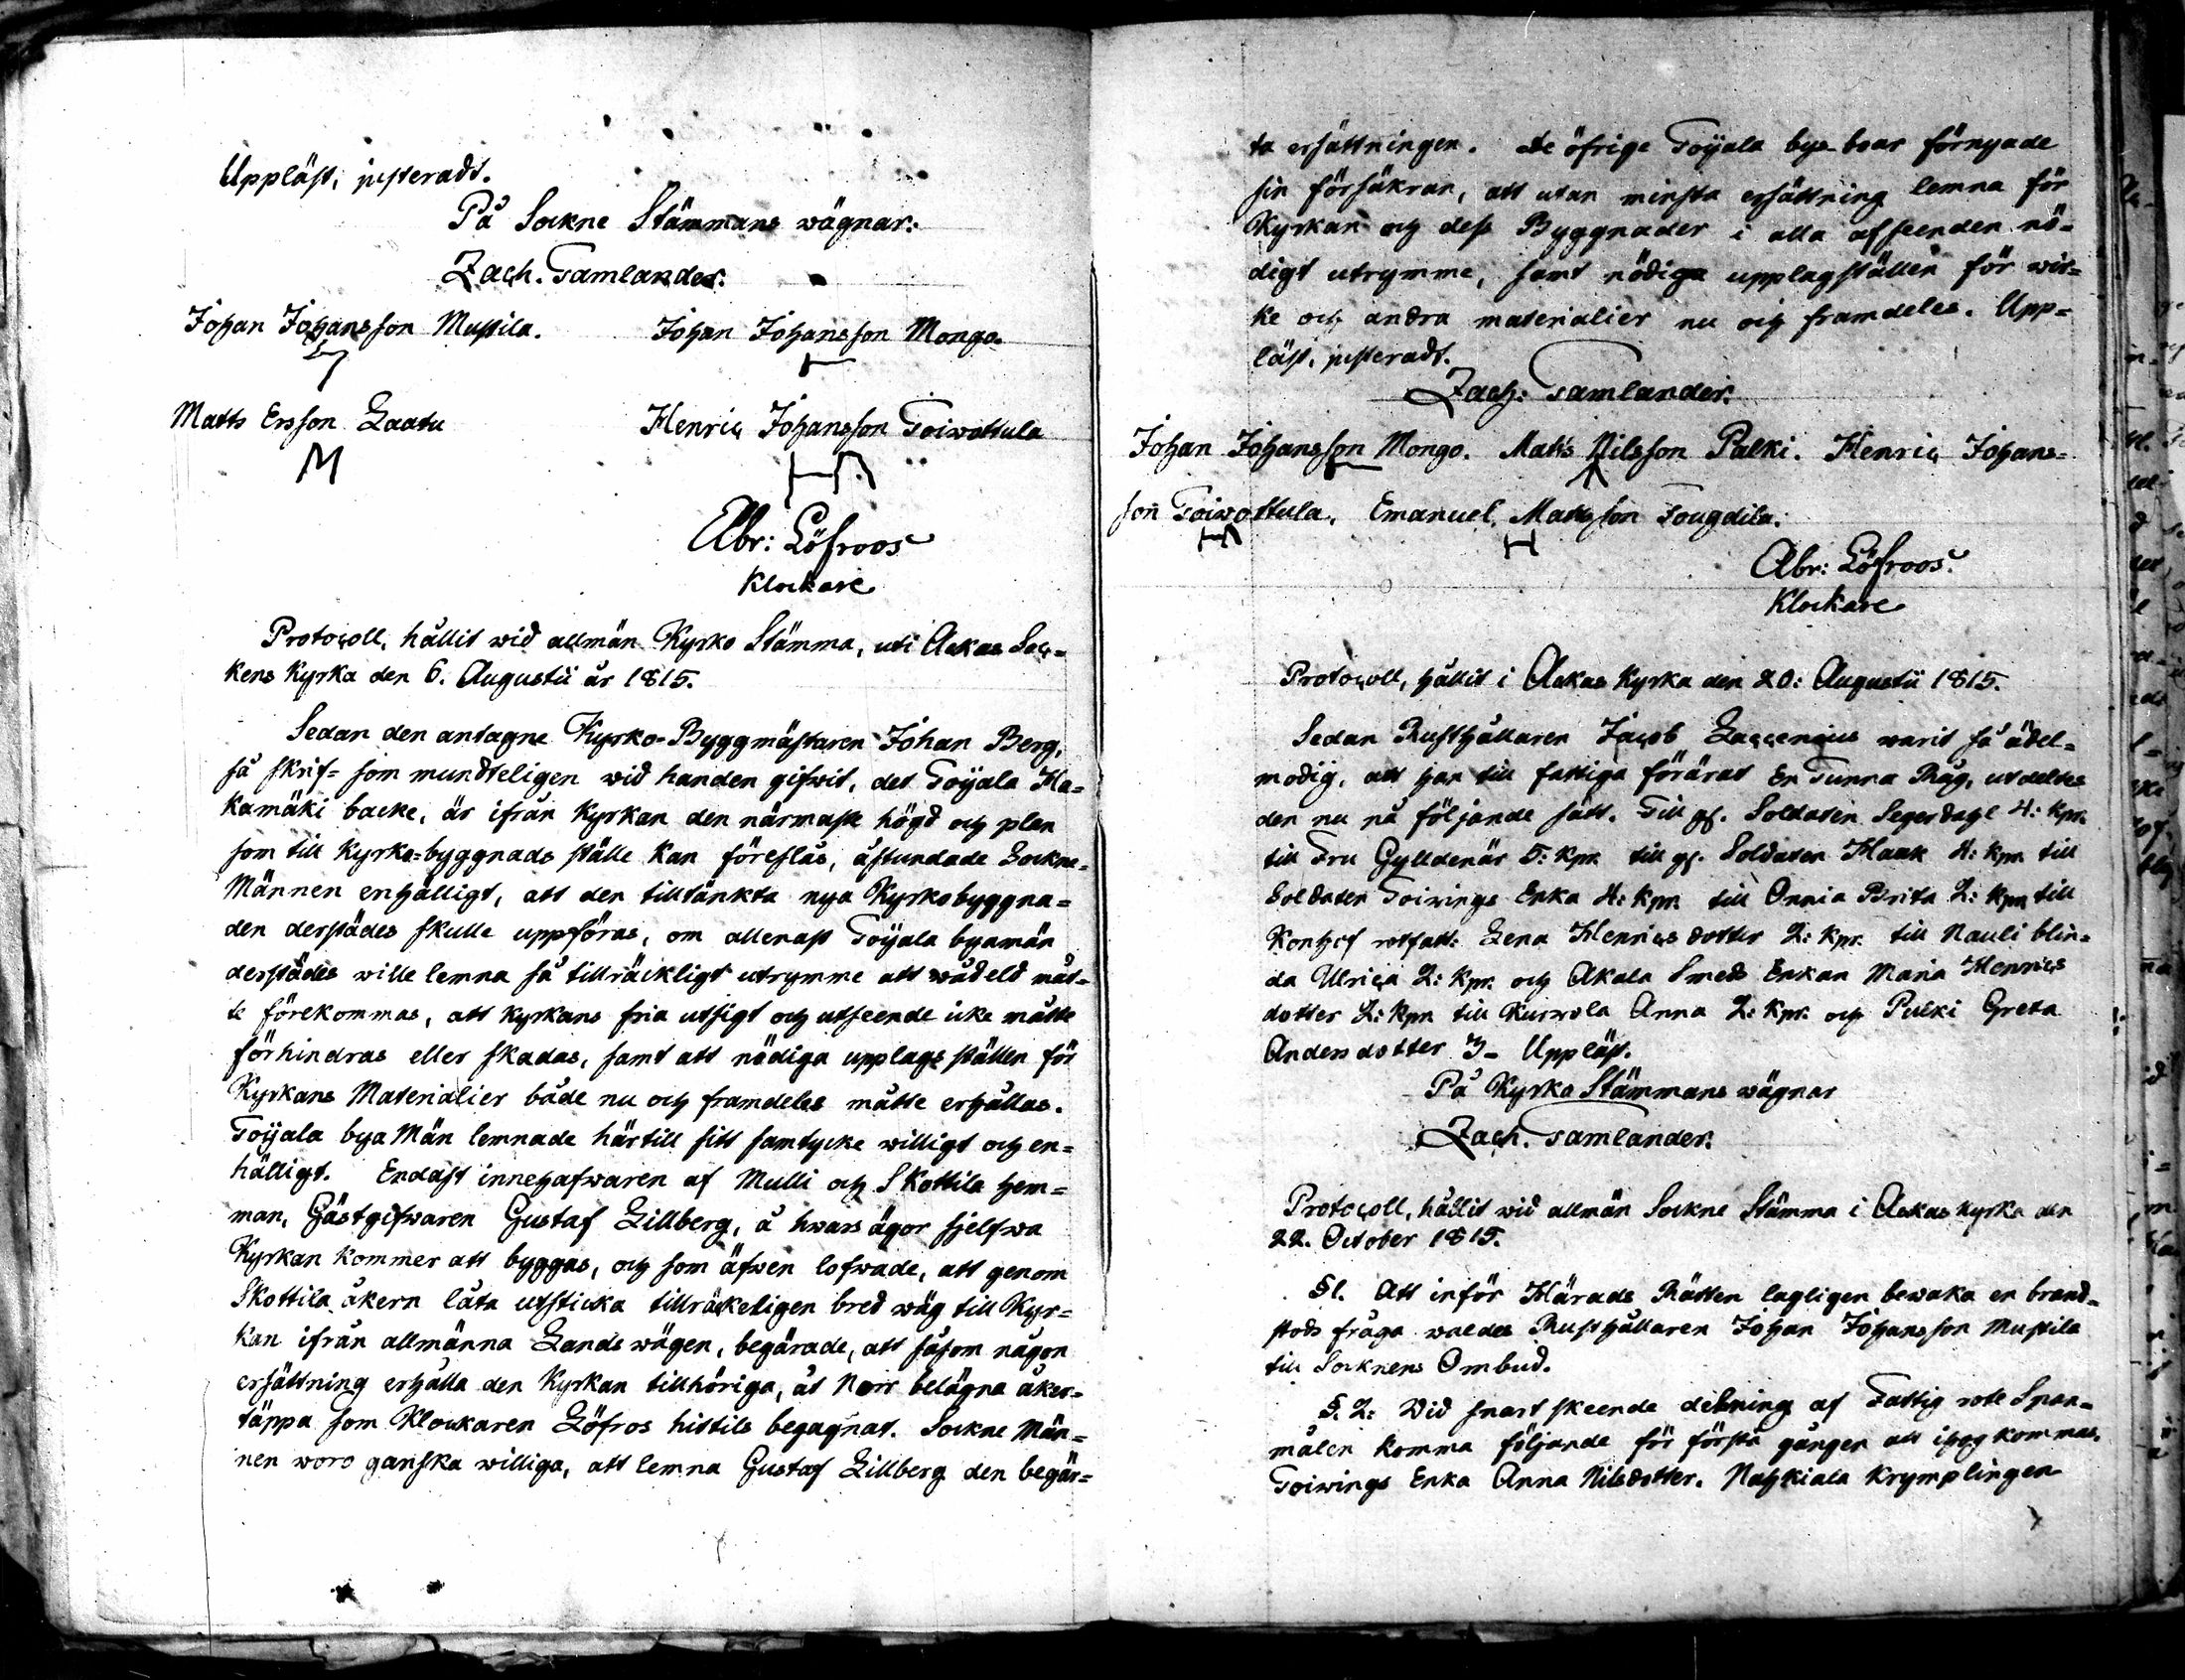 Uppläst, justeradt.
På Sockne Stämmans wägnar:
Zach. Tamlander.
Johan Johansson Mustila. Johan Johansson Mongo.
Matts Ersson Laatu Henric Johansson Toiwottula
M HA
Abr: Löfroos
Klockare
Protocoll, hållit wid allmän Kyrko Stämma, uti Ackas Soc-
kens Kyrka den 6. Augustii år 1815.
Sedan den antagne Kyrko-Byggmästaren Johan Berg,
så skrif- som mundteligen wid handen gifwit, det Toijala Ha-
kamäki backe, är ifrån Kyrkan den närmaste högd och plan
som till Kyrko-byggnads ställe kan föreslås, åstundade Sockne-
Männen enhälligt, att den tilltänkta nya Kyrkobyggna-
den derstädes skulle uppföras, om allenast Toijala byamän
derstädes wille lemna så tillräckligt utrymme att wådeld måt-
te förekommas, att kyrkans fria utsigt och utseende icke måtte
förhindras eller skadas, samt att nödiga upplags ställen för
Kyrkans Materialier både nu och framdeles måtte erhållas.
Toijala bya Män lemnade härtill sitt samtycke willigt och en-
hälligt. Endast innehafwaren af Mulli och Skottila hem-
man, Gästgifwaren Gustaf Lillberg, å hwars ägor sjelfwa
Kyrkan kommer att byggas, och som äfwen lofwade, att genom
Skottila åkern låta utsticka tillräckeligen bred wäg till Kyr-
kan ifrån allmänna Landswägen, begärade, att såsom någon
ersättning erhålla den Kyrkan tillhöriga, åt Norr belägna åker-
täppa som Klockaren Löfros hittils begagnat. Sockne Män-
nen woro ganska williga, att lemna Gustaf Lillberg den begär-
ta ersättningen. De öfrige Toijala bya boar förnyade
sin försäkran, att utan minsta ersättning lemna för
Kyrkan och dess Byggnader i alla afseenden nö-
digt utrymme, samt nödiga upplagställen för wir-
ke och andra materialier nu och framdeles. Upp-
läst, justeradt.
Zach: Tamlander.
Johan Johansson Mongo. Matts Nilsson Palki. Henric Johans-
son Toiwottula. Emanuel Mattsson Fougdila.
HA H
Abr: Löfroos.
Klockare
Protocoll, hållit i Ackas Kyrka den 20: Augustii 1815.
Sedan Rusthållaren Jacob Laccenius warit så ädel-
modig, att han till fattiga förärat En Tunna Råg, utdeltes
den nu på följande sätt. Till gf. Soldaten Segerdahl 4: kpr.
till Fru Gylldenär 5: kpr. till gf. Soldaten Haak 4: kpr. till
Soldaten Toiwings Enka 4: kpr. till Onnia Brita 2: kpr. till
Konhof rotfatt: Lena Henricsdotter 2: kpr. till Nauli blin-
da Ulrica 2: kpr. och Akala Smeds Enkan Maria Henrics
dotter 2: kpr. till Kurwola Anna 2: kpr. och Pulki Greta
Andersdotter 3- Uppläst.
På Kyrko Stämmans wägnar
Zach. Tamlander.
Protocoll, hållit wid allmän Sockne Stämma i Ackas kyrka den
22. October 1815.
§1. Att inför Härads Rätten lagligen bewaka en brand-
stods fråga waldes Rusthållaren Johan Johansson Mustila
till Socknens Ombud.
§. 2: Wid snart skeende delning af Fattig rote Span-
målen komma följande för första gången att ihogkommas.
Toiwings Enka Anna Nilsdotter. Nahkiala Krymplingen